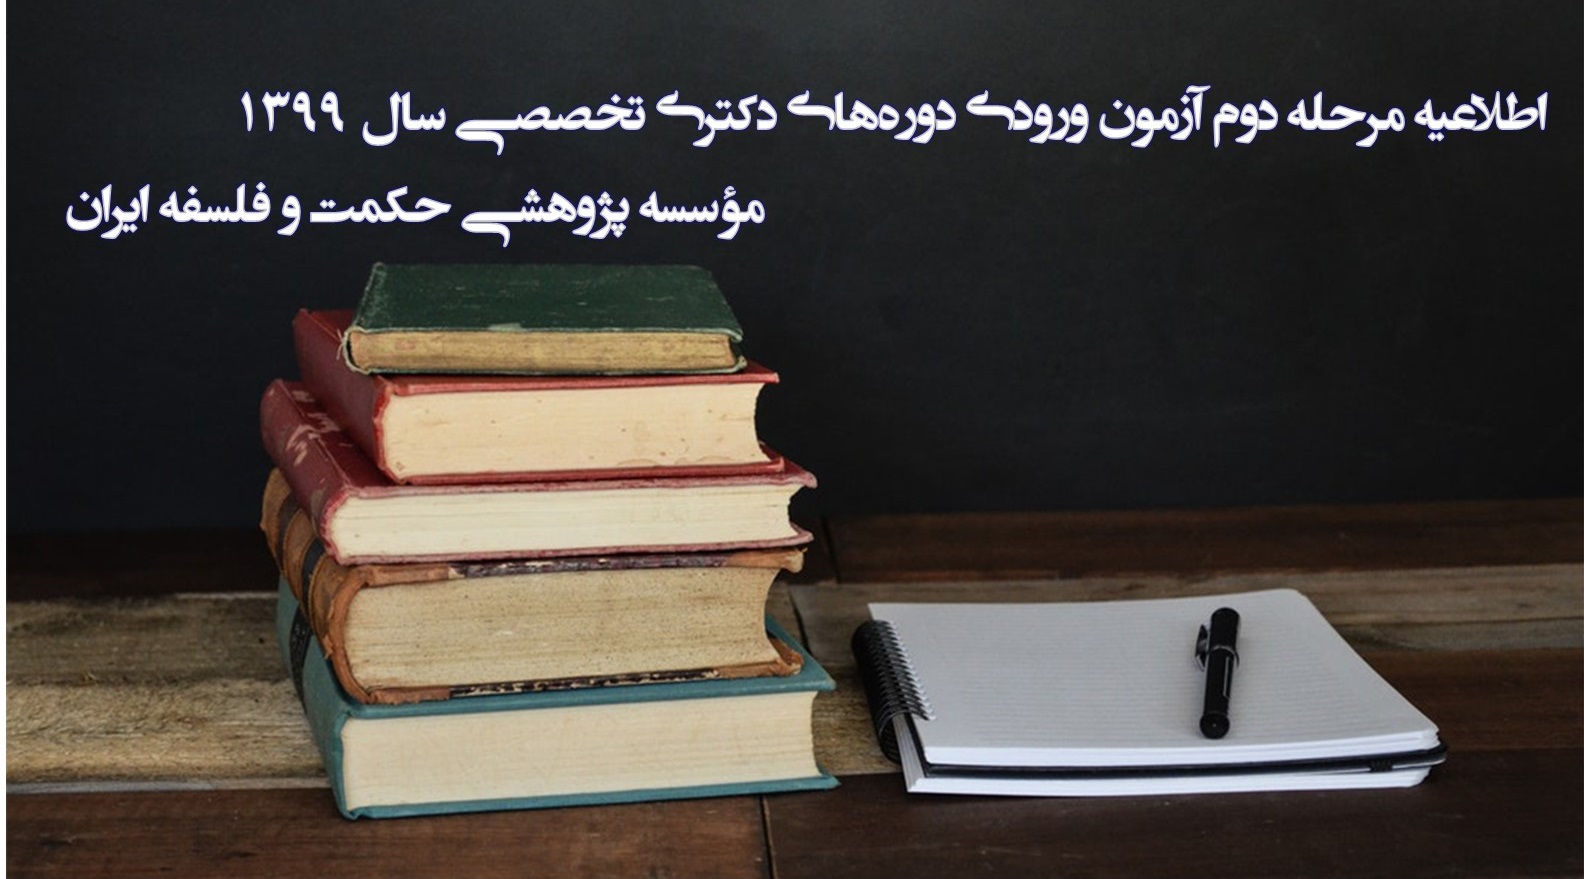 اطلاعیه مرحله دوم آزمون ورودی دوره‌های دکتری تخصصی سال ۱۳۹۹
مؤسسه پژوهشی حکمت و فلسفه ایران